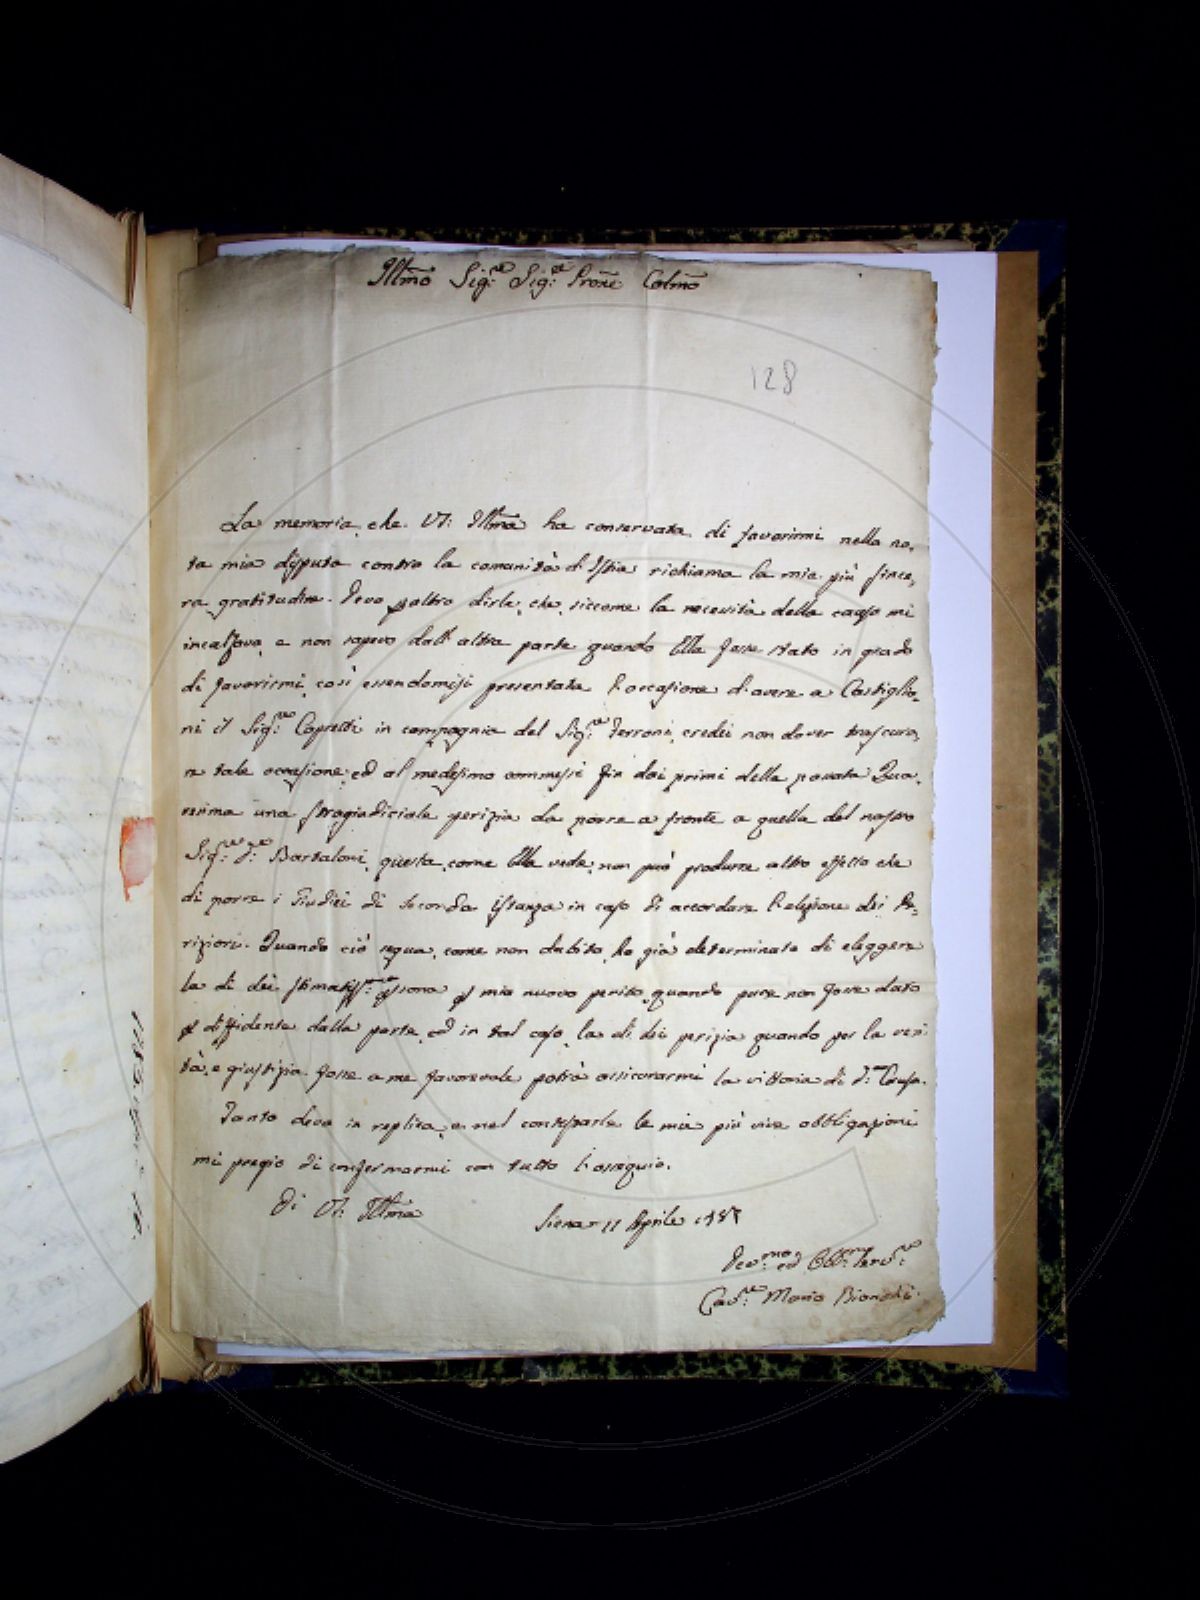 Illmo Sig.re Sig.re Prone Colmo
128
La memoria, che V.S. Illma ha conservata di favorirmi nella no,
ta mia disputa contro la comunità d'Istia richiama la mia più since,
ra gratitudine. Devo paltro dirle, che, siccome la necessità della causa mi
incalzava, e non sapevo dall'altra parte quando Ella fosse stato in grado
di favorirmi, così essendomisi presentata l'occasione d'avere a Castiglio,
ni il Sig.re Capretti in compagnia del Sig.re Ferroni, credei non dover trascura,
re tale occasione, ed al medesimo commessi fin dai primi della passata Qua,
resima una stragiudiciale perizia da porre a fronte a quella del nostro
Sig.re D.re Bartaloni, questa, come Ella vede, non può produrre altro effetto che
di porre i Giudici di seconda istanza in caso di accordare l'elezione dei Pe,
ritiori. Quando ciò segua, come non dubito, ho già determinato di eleggere
la di lei stimatiss.ma psona p mio nuovo perito, quando pure non fosse dato
p diffidente dalla parte, ed in tal caso, la di lei perizia quando per la veri
tà, e giustizia fosse a me favorevole potrà assicurarmi la vittoria di d.a Causa.
Tanto devo in replica, e nel contestarle le mie più vive obbligazioni
mi pregio di confermarmi con tutto l'ossequio.
Di V.S. Illma
Siena 11 Aprile 178
Dev.mo ed Obb.mo Serv.re
Cav.re Mario Bianchi